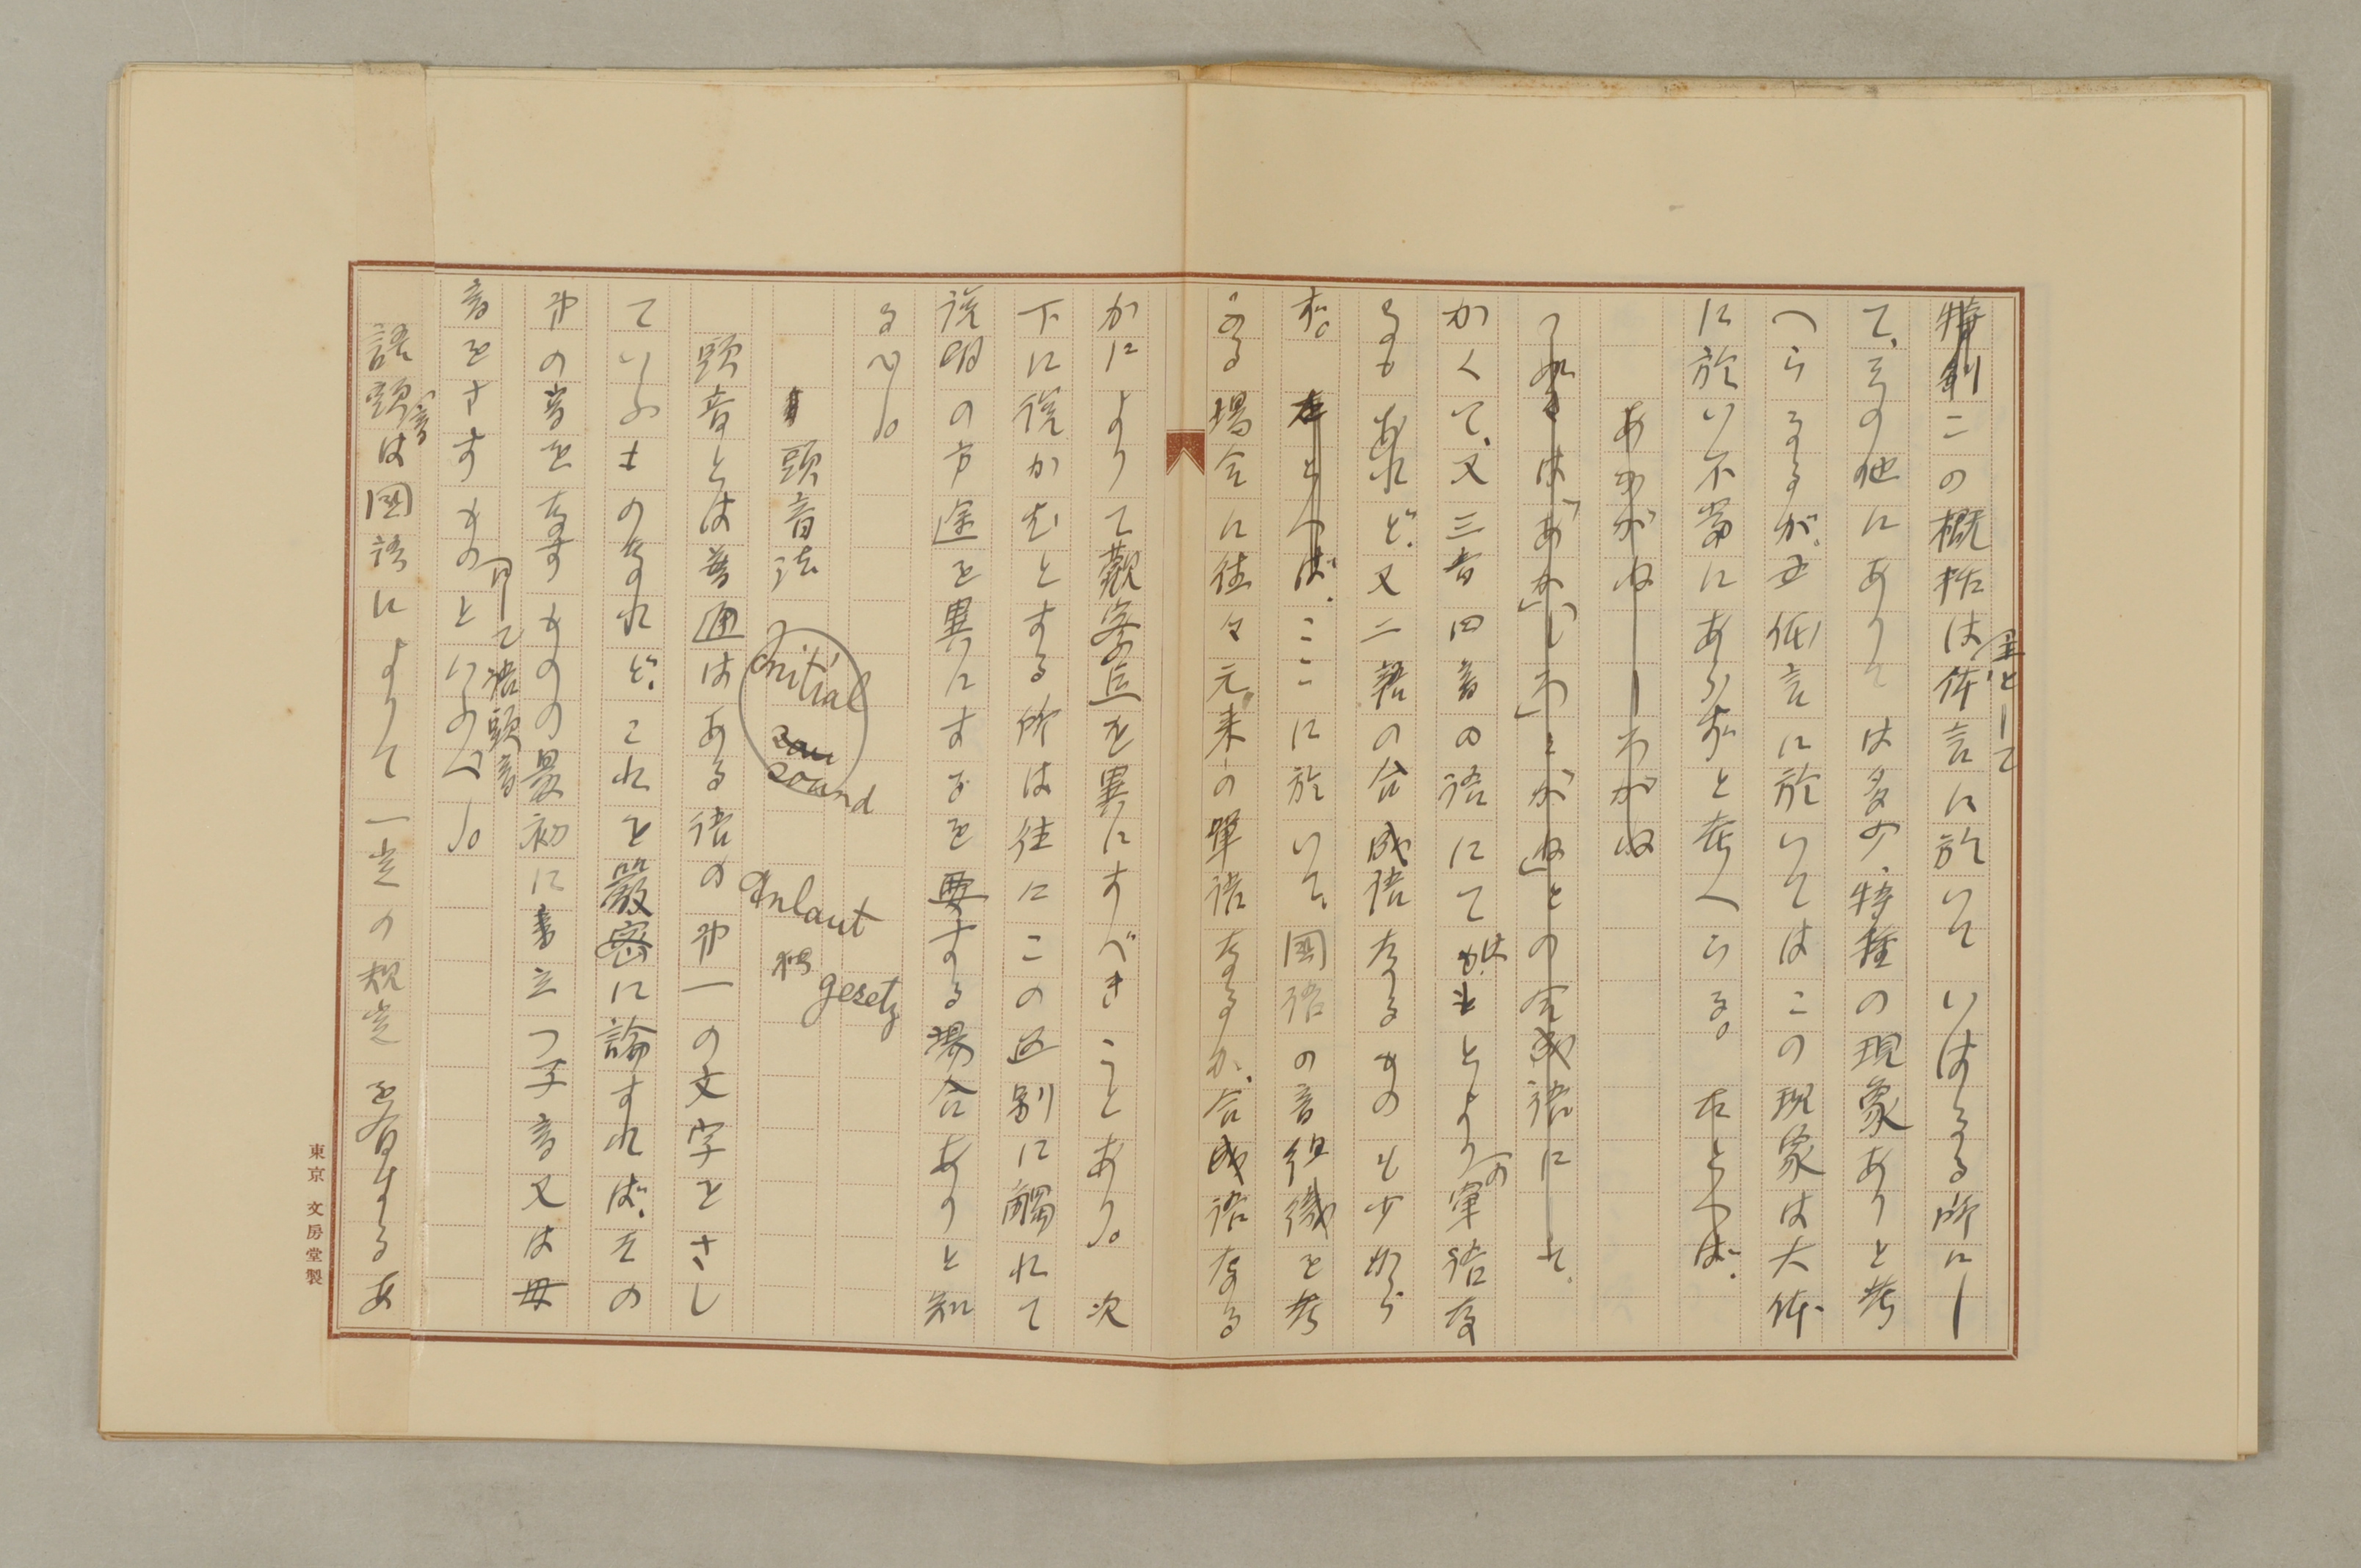 特別この概括は主として体言に於いていはるる所にし
て、その他にありては多少、特種の現象ありと考
へらるるが、体言に於いてはこの現象は大体
に於い不當にあらずと考へらる。たとへば、
あかがね―しろがね
これらは「あか」「しろ」と「かね」との合成語にて、
かくて、又三音四音の語にてはもとよりの單語な
るもあれど、又二語の合成語なるもの少から
ず。たとへば、ここに於いて、國語の音組織を考
ふる場合に往々元来の單語なるか、合成語なる
かによりて觀察点を異にすべきことあり。次
下に説かむとする所は往にこの区別に觸れて
説明の方途を異にするを要する場合ありと知
るべし。
頭音法 Initial sound Anlaut gesetz
頭音とは普通はある語の第一の文字をさし
ていふものなれど、これを嚴密に論ずれば、その
第の音をなすものの最初に立つ子音又は母
音をさすものといふべし。
而して語頭音
語頭音は國語によりて一定の規定を有するあ
東京 文房堂製